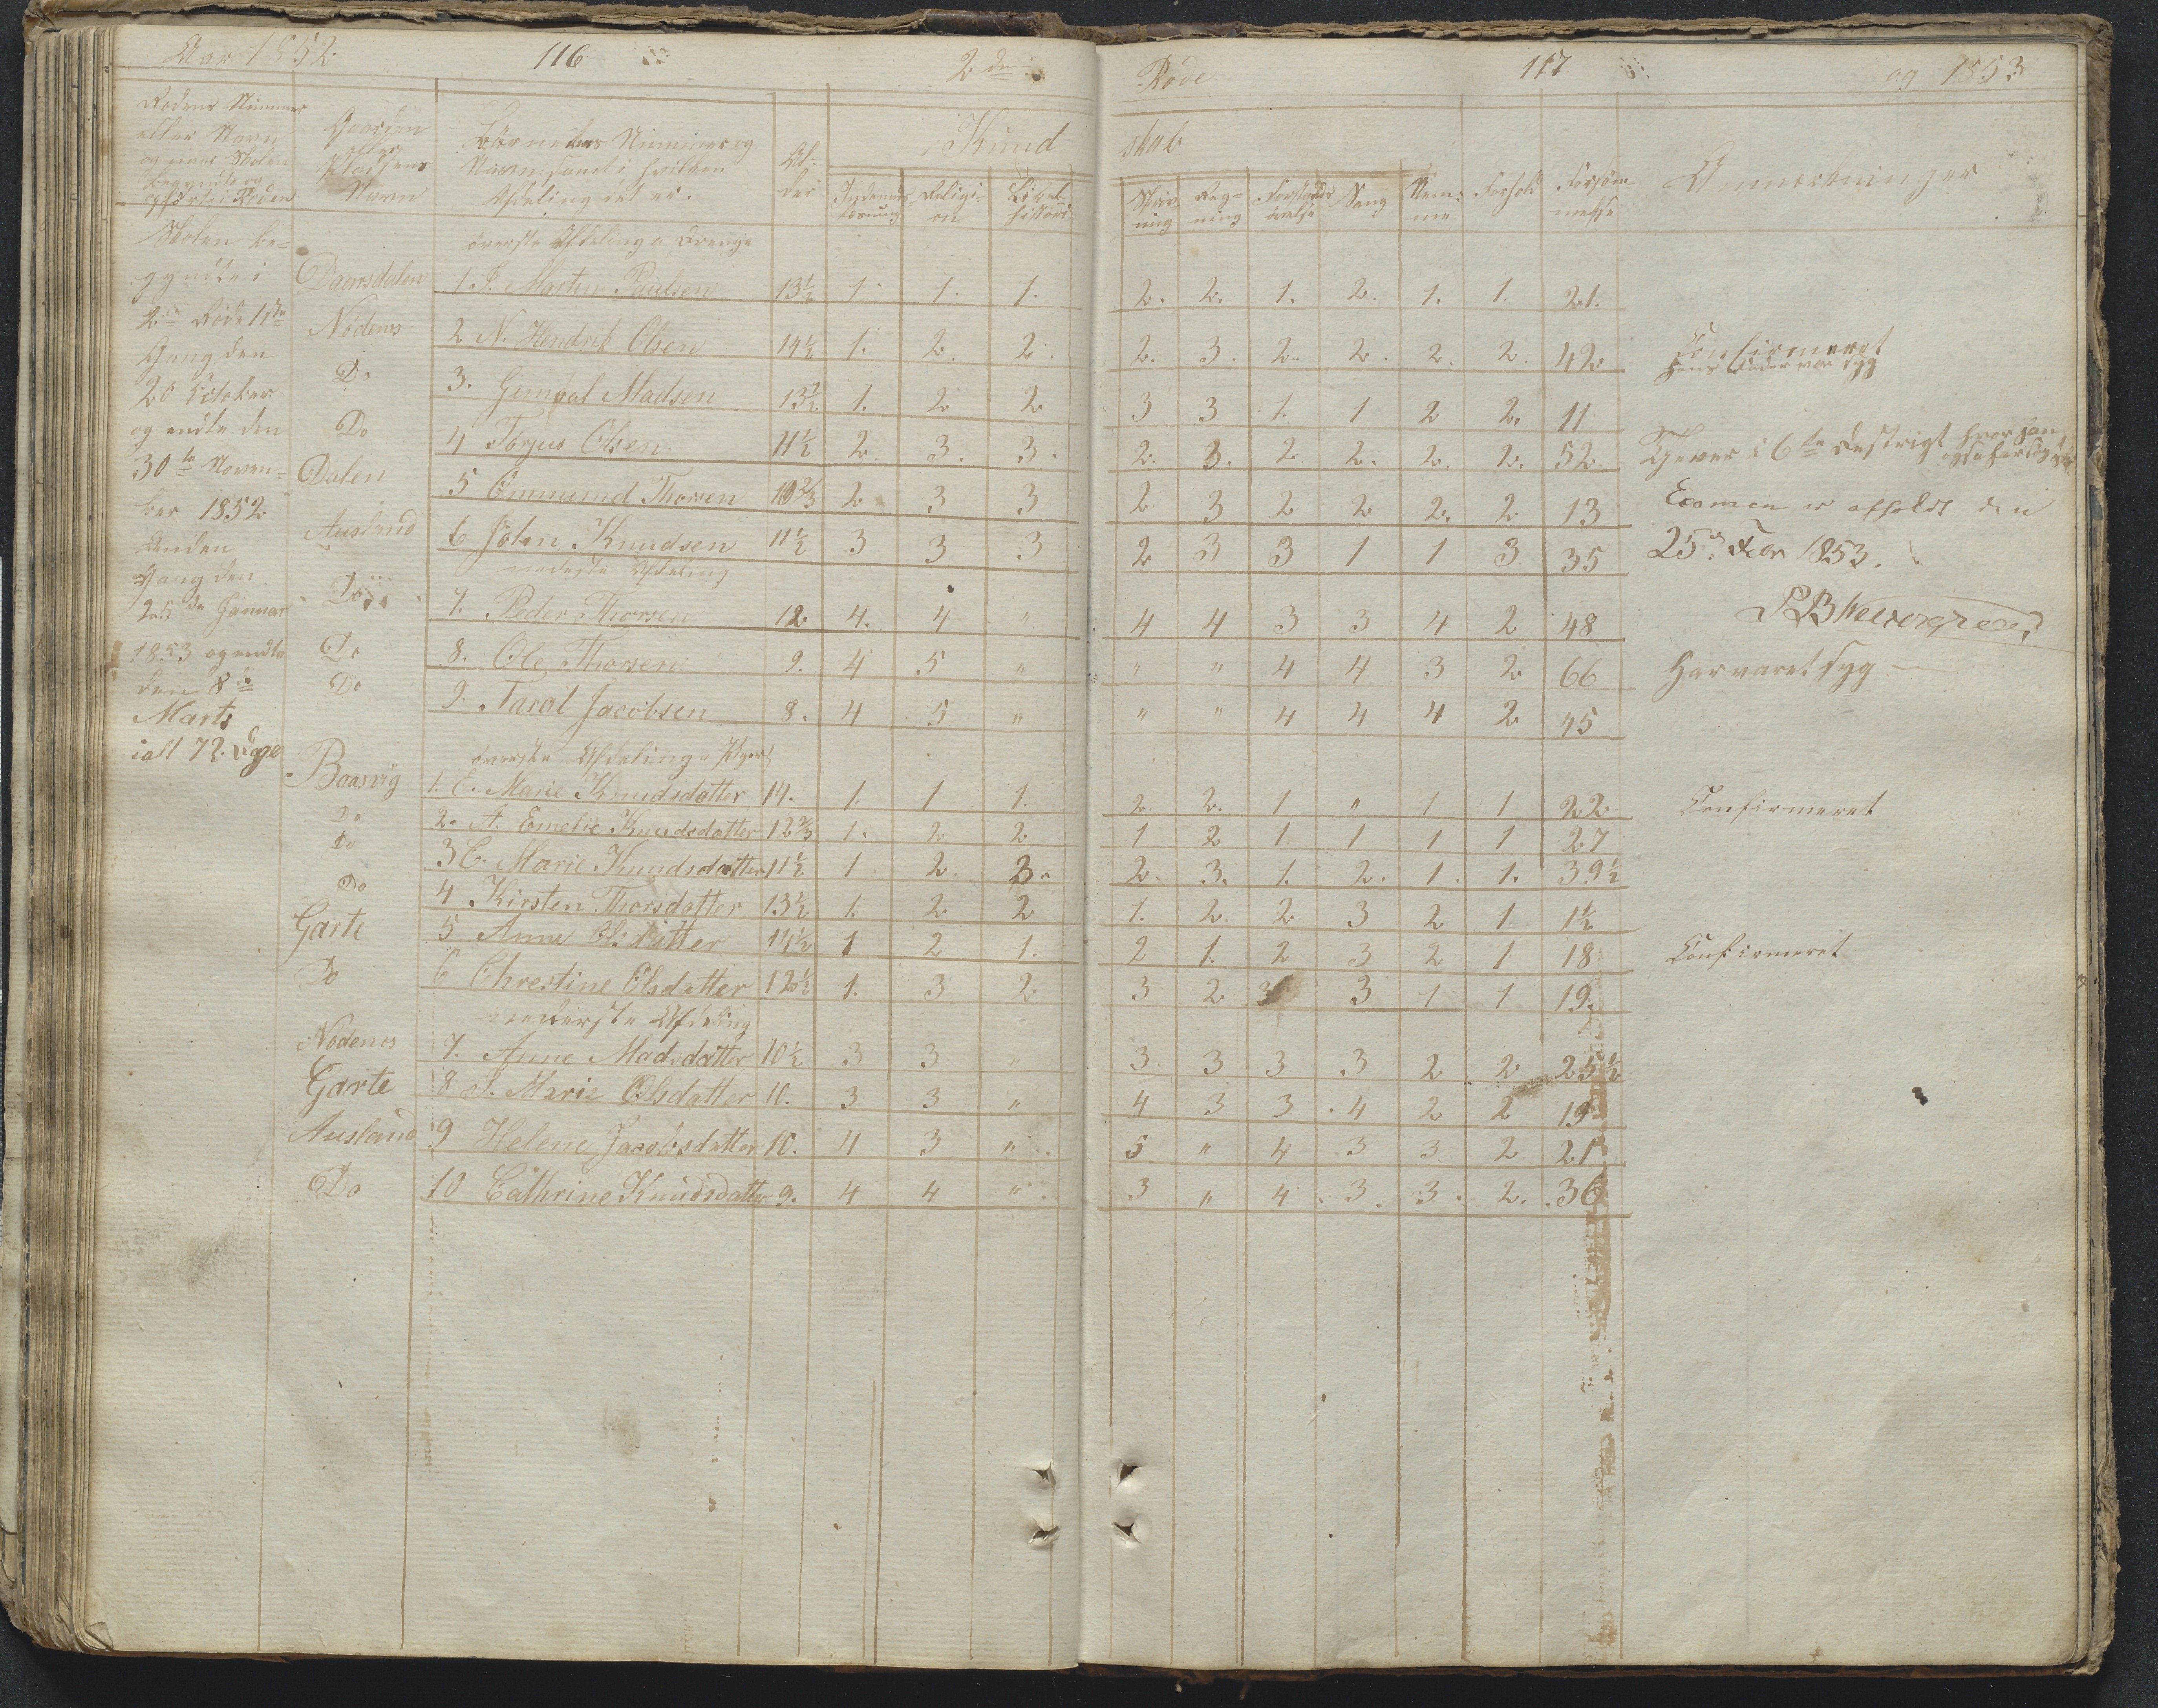 Aar 1852. 116 2de Rode 117 og 1853
Rodens Nummer
eller Navn
og naar Skolen
begyndte og
ophørte i Roden
Gaardens
eller
Pladsens
Navn
Børnenes Nummer og
Navn samt i hvilken
Afdeling det er.
Al-
der
Kund skab
Indenads Læsning Religi-on Bibel-historie
Skriv-ning Reg-ning Forstands øvelse Sang Nem-me Forhold Forsøm-melse
Anmærkninger
Skolen be-
gyndte i
2den Rode 1ste
Gang den
20 October
og endte den
30te Novem-
ber 1852
Anden
Gang den
25de Januar
1853 og endte
den 8de
Marts
ialt 72. Dage
øverste Afdeling a Drenge
Daarsdalen 1. P. Martin Paulsen 13½ 1. 1. 1. 2. 2. 1. 2. 1. 1. 21.
Nödenes 2 N. Hendrik Olsen 14½ 1. 2. 2. 2. 3. 2. 2. 2. 2. 42 Confirmeret
hans Fader var syg
Do 3. Gunval Madsen 13½ 1. 2 2 3 3 1. 1 2 2. 11
Do 4 Torjus Olsen 11½ 2 3. 3. 2. 3. 2 2. 2. 2. 52.
Dalen 5 Ommund Thorsen 10⅔ 2 3 3 2 3 2 2 2. 2 13
Ausland 6 John Knudsen 11½ 3 3 3 2 3 3 1 1 3 35
Examen er afholdt den
25de Febr 1853.
nederste Afdeling
Do 7. Peder Thorsen 12 4. 4 " 4 4 3 3 4 2 48
Do 8. Ole Thorsen 9. 4 5 " " " 4 4 3 2 66 Har været syg
Do 9. Taral Jacobsen 8. 4 5 " " " 4 4 4 2 45
øverste Afdeling Piger
Baasvig 1. E. Marie Knudsdatter 14. 1. 1 1. 2. 2. 1 " 1 1 22 Confirmeret
Do 2. A. Emelie Knudsdatter 12⅔ 1. 2 2 1 2 1 1 1 1 27
Do 3 C. Marie Knudsdatter 11½ 1 2. 3. 2. 3. 1. 2. 1. 1. 39½
Do 4 Kirsten Thorsdatter 13½ 1. 2 2 1. 2. 2 3 2 1 1½
Garte 5 Anne Olsdatter 14½ 1 2 1. 2 1. 2 3 2 1 18 Confirmeret
Do 6 Chrestine Olsdatter 12½ 1. 3 2 3 2 3 3 1 1 19.
nederste Afdeling
Nödenes 7. Anne Madsdatter 10½ 3 3 " 3 3 3 3 2 2 25½
Garte 8 S. Marie Olsdatter 10. 3 3 " 4 3 3 4 2 2 19
Ausland 9 Helene Jacobsdatter 10. 4 3 " 5 " 4 3 3 2 21
Do 10 Cathrine Knudsdatter 9. 4 4 " 3 " 4 3 3 2. 36